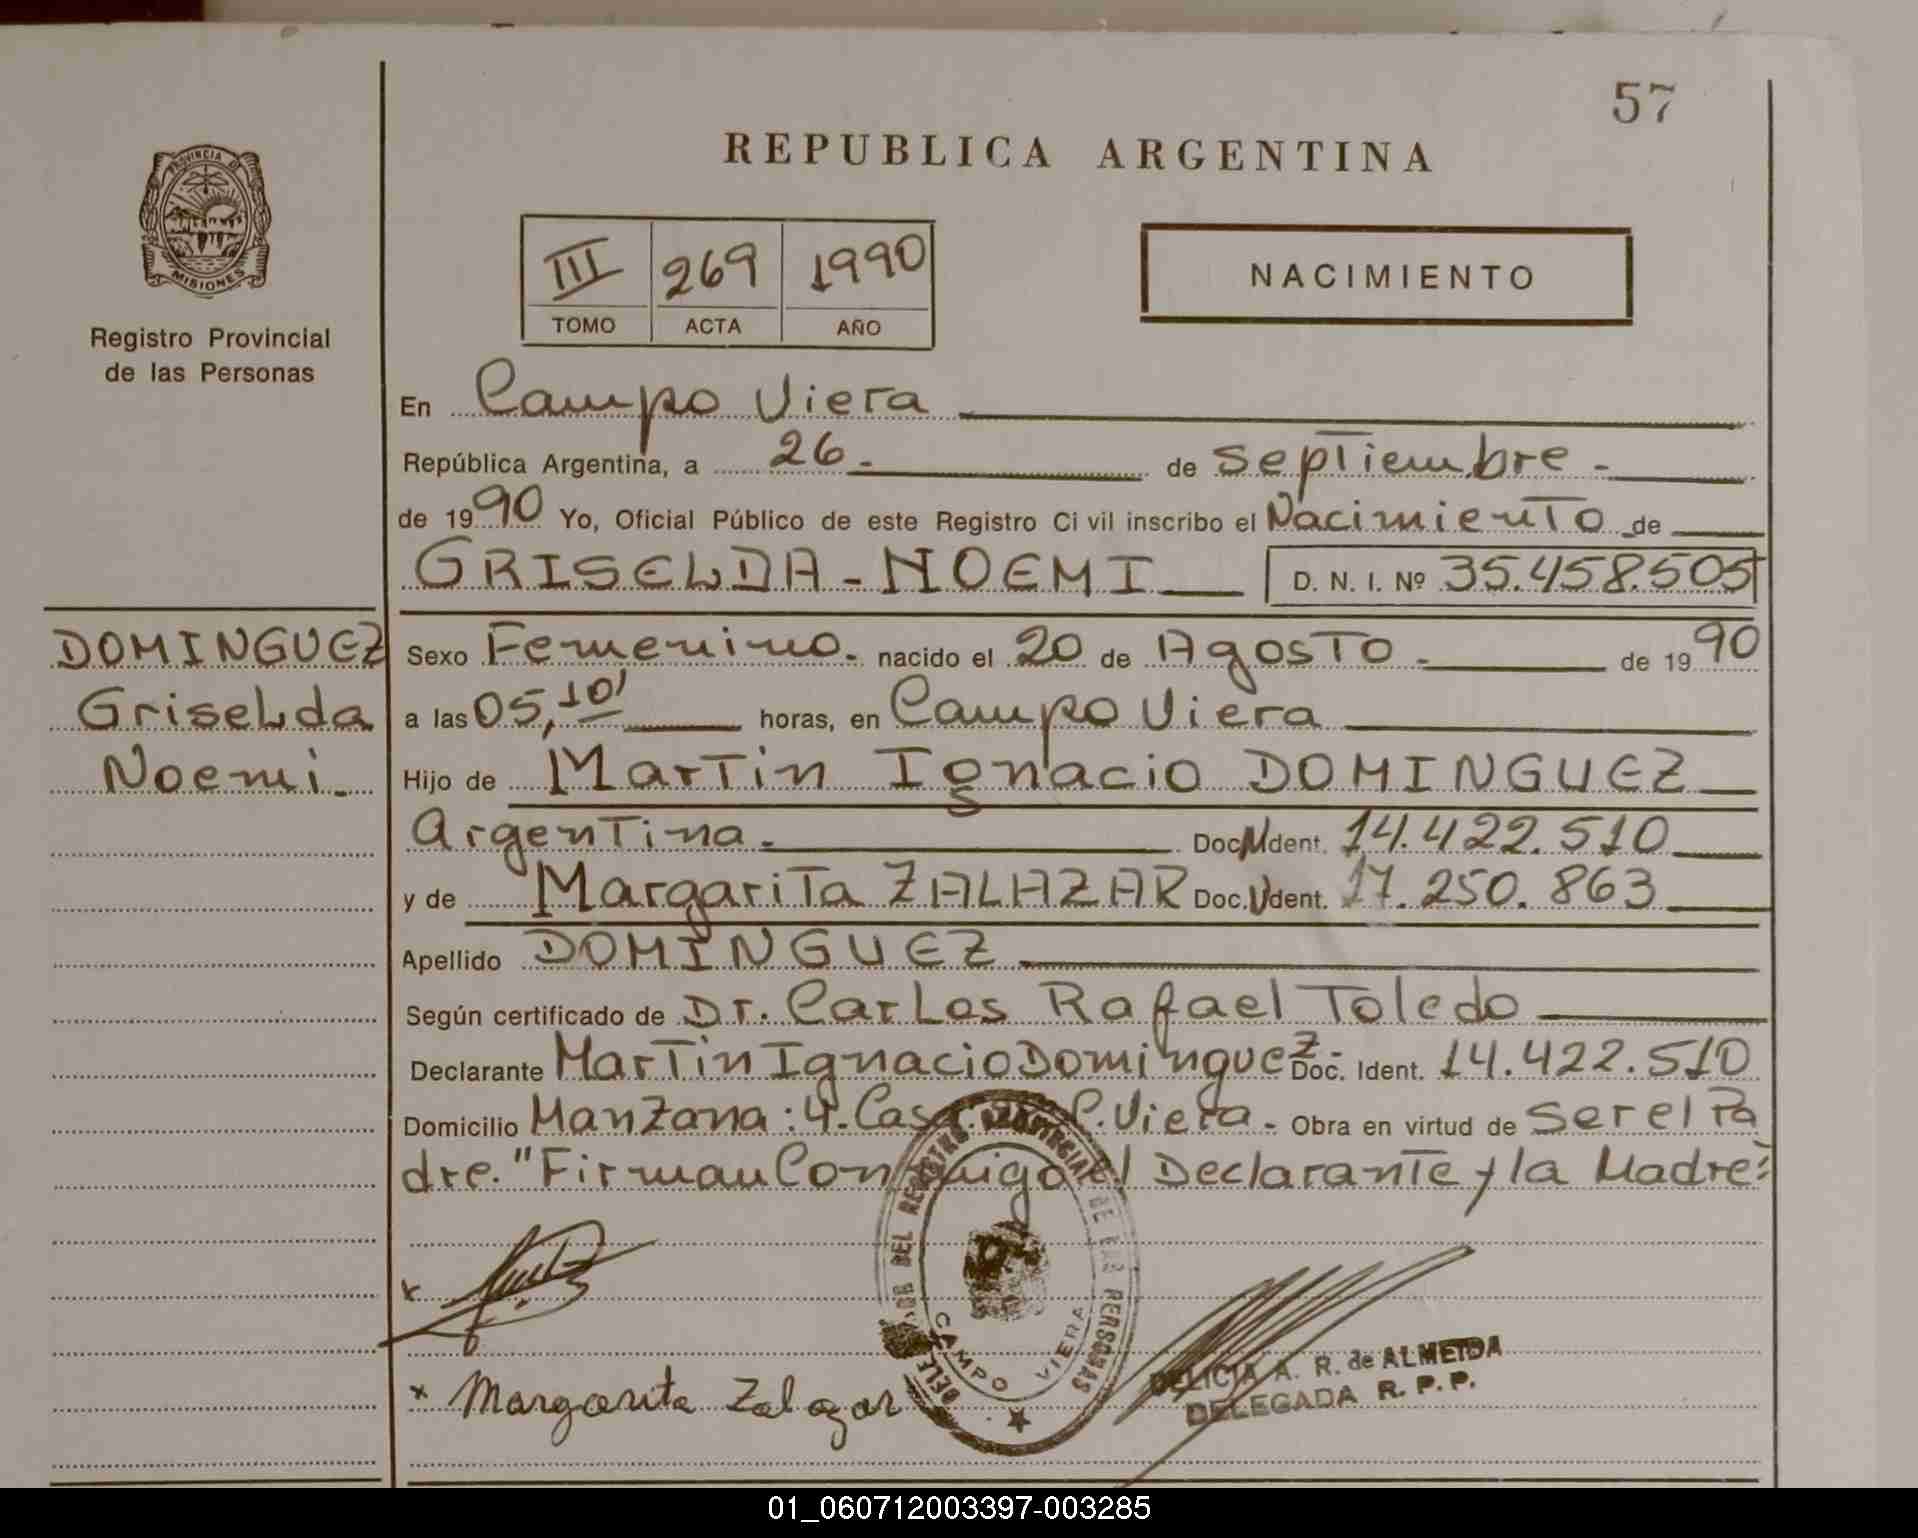 57
REPUBLICA ARGENTINA
PROVINCIA DE
MISIONES
Registro Provincial
de las Personas
III 269 1990
TOMO ACTA AÑO
NACIMIENTO
En Campo Viera
República Argentina, a 26.- de septiembre.-
de 1990 Yo, Oficial Público de este Registro Civil inscribo el Nacimiento de
GRISELDA-NOEMI D. N. I. Nº 35.458.505
DOMINGUEZ
Griselda
Noemi.-
Sexo Femenino.- nacido el 20 de Agosto.- de 1990
a las 05,10' horas, en Campo Viera
Hijo de Martin Ignacio DOMINGUEZ
Argentina.- Doc. Ident. 14.422.510
y de Margarita ZALAZAR Doc. Ident. 17.250.863
Apellido DOMINGUEZ
Según certificado de Dr. Carlos Rafael Toledo
Declarante Martin Ignacio Dominguez Doc. Ident. 14.422.510
Domicilio Manzana: 4. Viera.- Obra en virtud de ser el Pa
dre. "Firman Conmigo el Declarante y la Madre:
x
x Margarita Zalazar
DEL REGISTRO PROVINCIAL DE LAS PERSONAS
CAMPO VIERA
DELICIA A. R. de ALMEIDA
DELEGADA R. P. P.
01_060712003397-003285